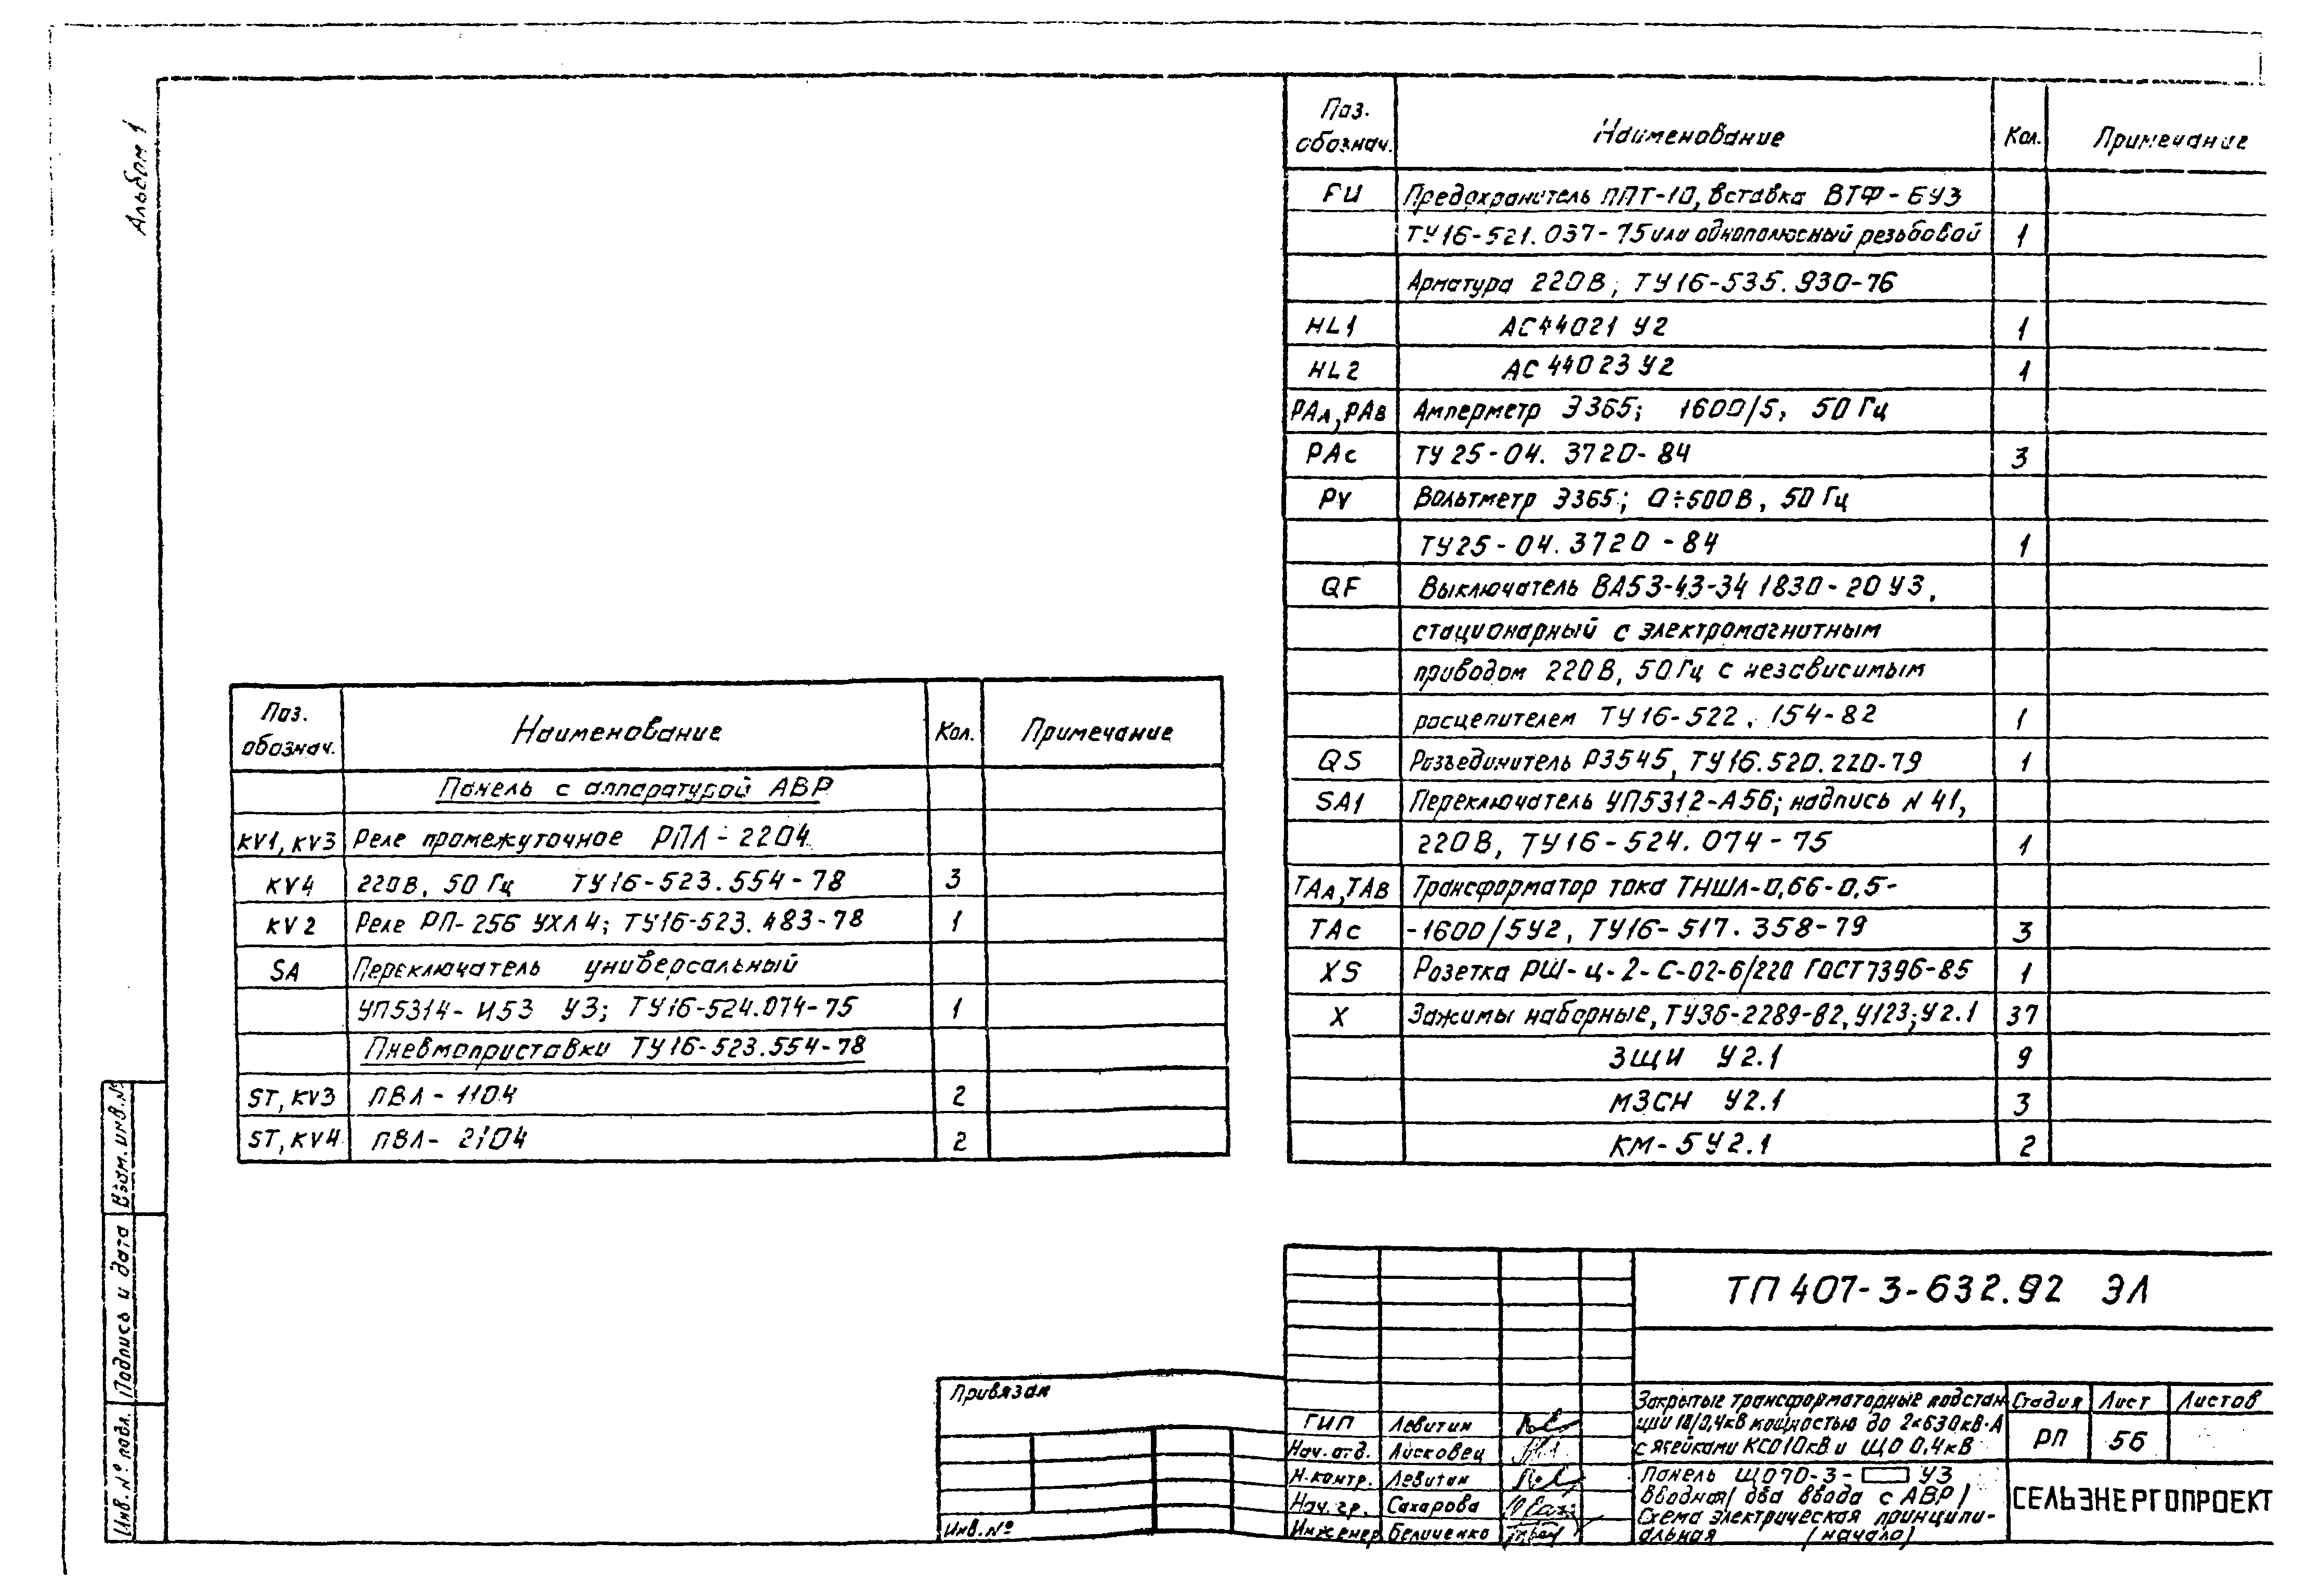 Альбом 1
Поз. обознач. Наименование Кол. Примечание
Панель с аппаратурой АВР
KV1, KV3 Реле промежуточное РПЛ-2204
KV4 220В, 50 Гц ТУ16-523.554-78 3
KV2 Реле РП-256 УХЛ4; ТУ16-523.483-78 1
SA Переключатель универсальный
УП5314-И53 У3; ТУ16-524.074-75 1
Пневмоприставки ТУ16-523.554-78
ST, KV3 ПВЛ-1104 2
ST, KV4 ПВЛ-2104 2
Поз. обознач. Наименование Кол. Примечание
FU Предохранитель ППТ-10, вставка ВТФ-6У3
ТУ16-521.037-75 или однополюсный резьбовой 1
Арматура 220В; ТУ16-535.930-76
HL1 АС44021 У2 1
HL2 АС44023 У2 1
PAA, PAB Амперметр Э365; 1600/5, 50 Гц
PAC ТУ25-04.3720-84 3
PV Вольтметр Э365; 0÷500В, 50 Гц
ТУ25-04.3720-84 1
QF Выключатель ВА53-43-34 1830-20 У3,
стационарный с электромагнитным
приводом 220В, 50 Гц с независимым
расцепителем ТУ16-522.154-82 1
QS Разъединитель Р3545, ТУ16.520.220-79 1
SA1 Переключатель УП5312-А56; надпись N 41,
220В, ТУ16-524.074-75 1
TAA, TAB Трансформатор тока ТНШЛ-0,66-0,5-
TAC -1600/5У2, ТУ16-517.358-79 3
XS Розетка РШ-ц-2-С-02-6/220 ГОСТ7396-85 1
X Зажимы наборные, ТУ36-2289-82, У123; У2.1 37
ЗЩИ У2.1 9
МЗСН У2.1 3
КМ-5У2.1 2
Взам. инв. №
Подпись и дата
Инв. № подл.
Привязан
Инв. №
ТП 407-3-632.92 ЭЛ
ГИП Левитин
Нач. отд. Лисковец
Н. контр. Левитин
Нач. гр. Сахарова
Инженер Беличенко
Закрытые трансформаторные подстан-
ции 10/0,4кВ мощностью до 2×630кВ·А
с ячейками КСО 10кВ и ЩО 0,4кВ
Стадия Лист Листов
РП 56
Панель ЩО70-3- У3
вводная (два ввода с АВР)
Схема электрическая принципи-
альная (начало)
СЕЛЬЭНЕРГОПРОЕКТ